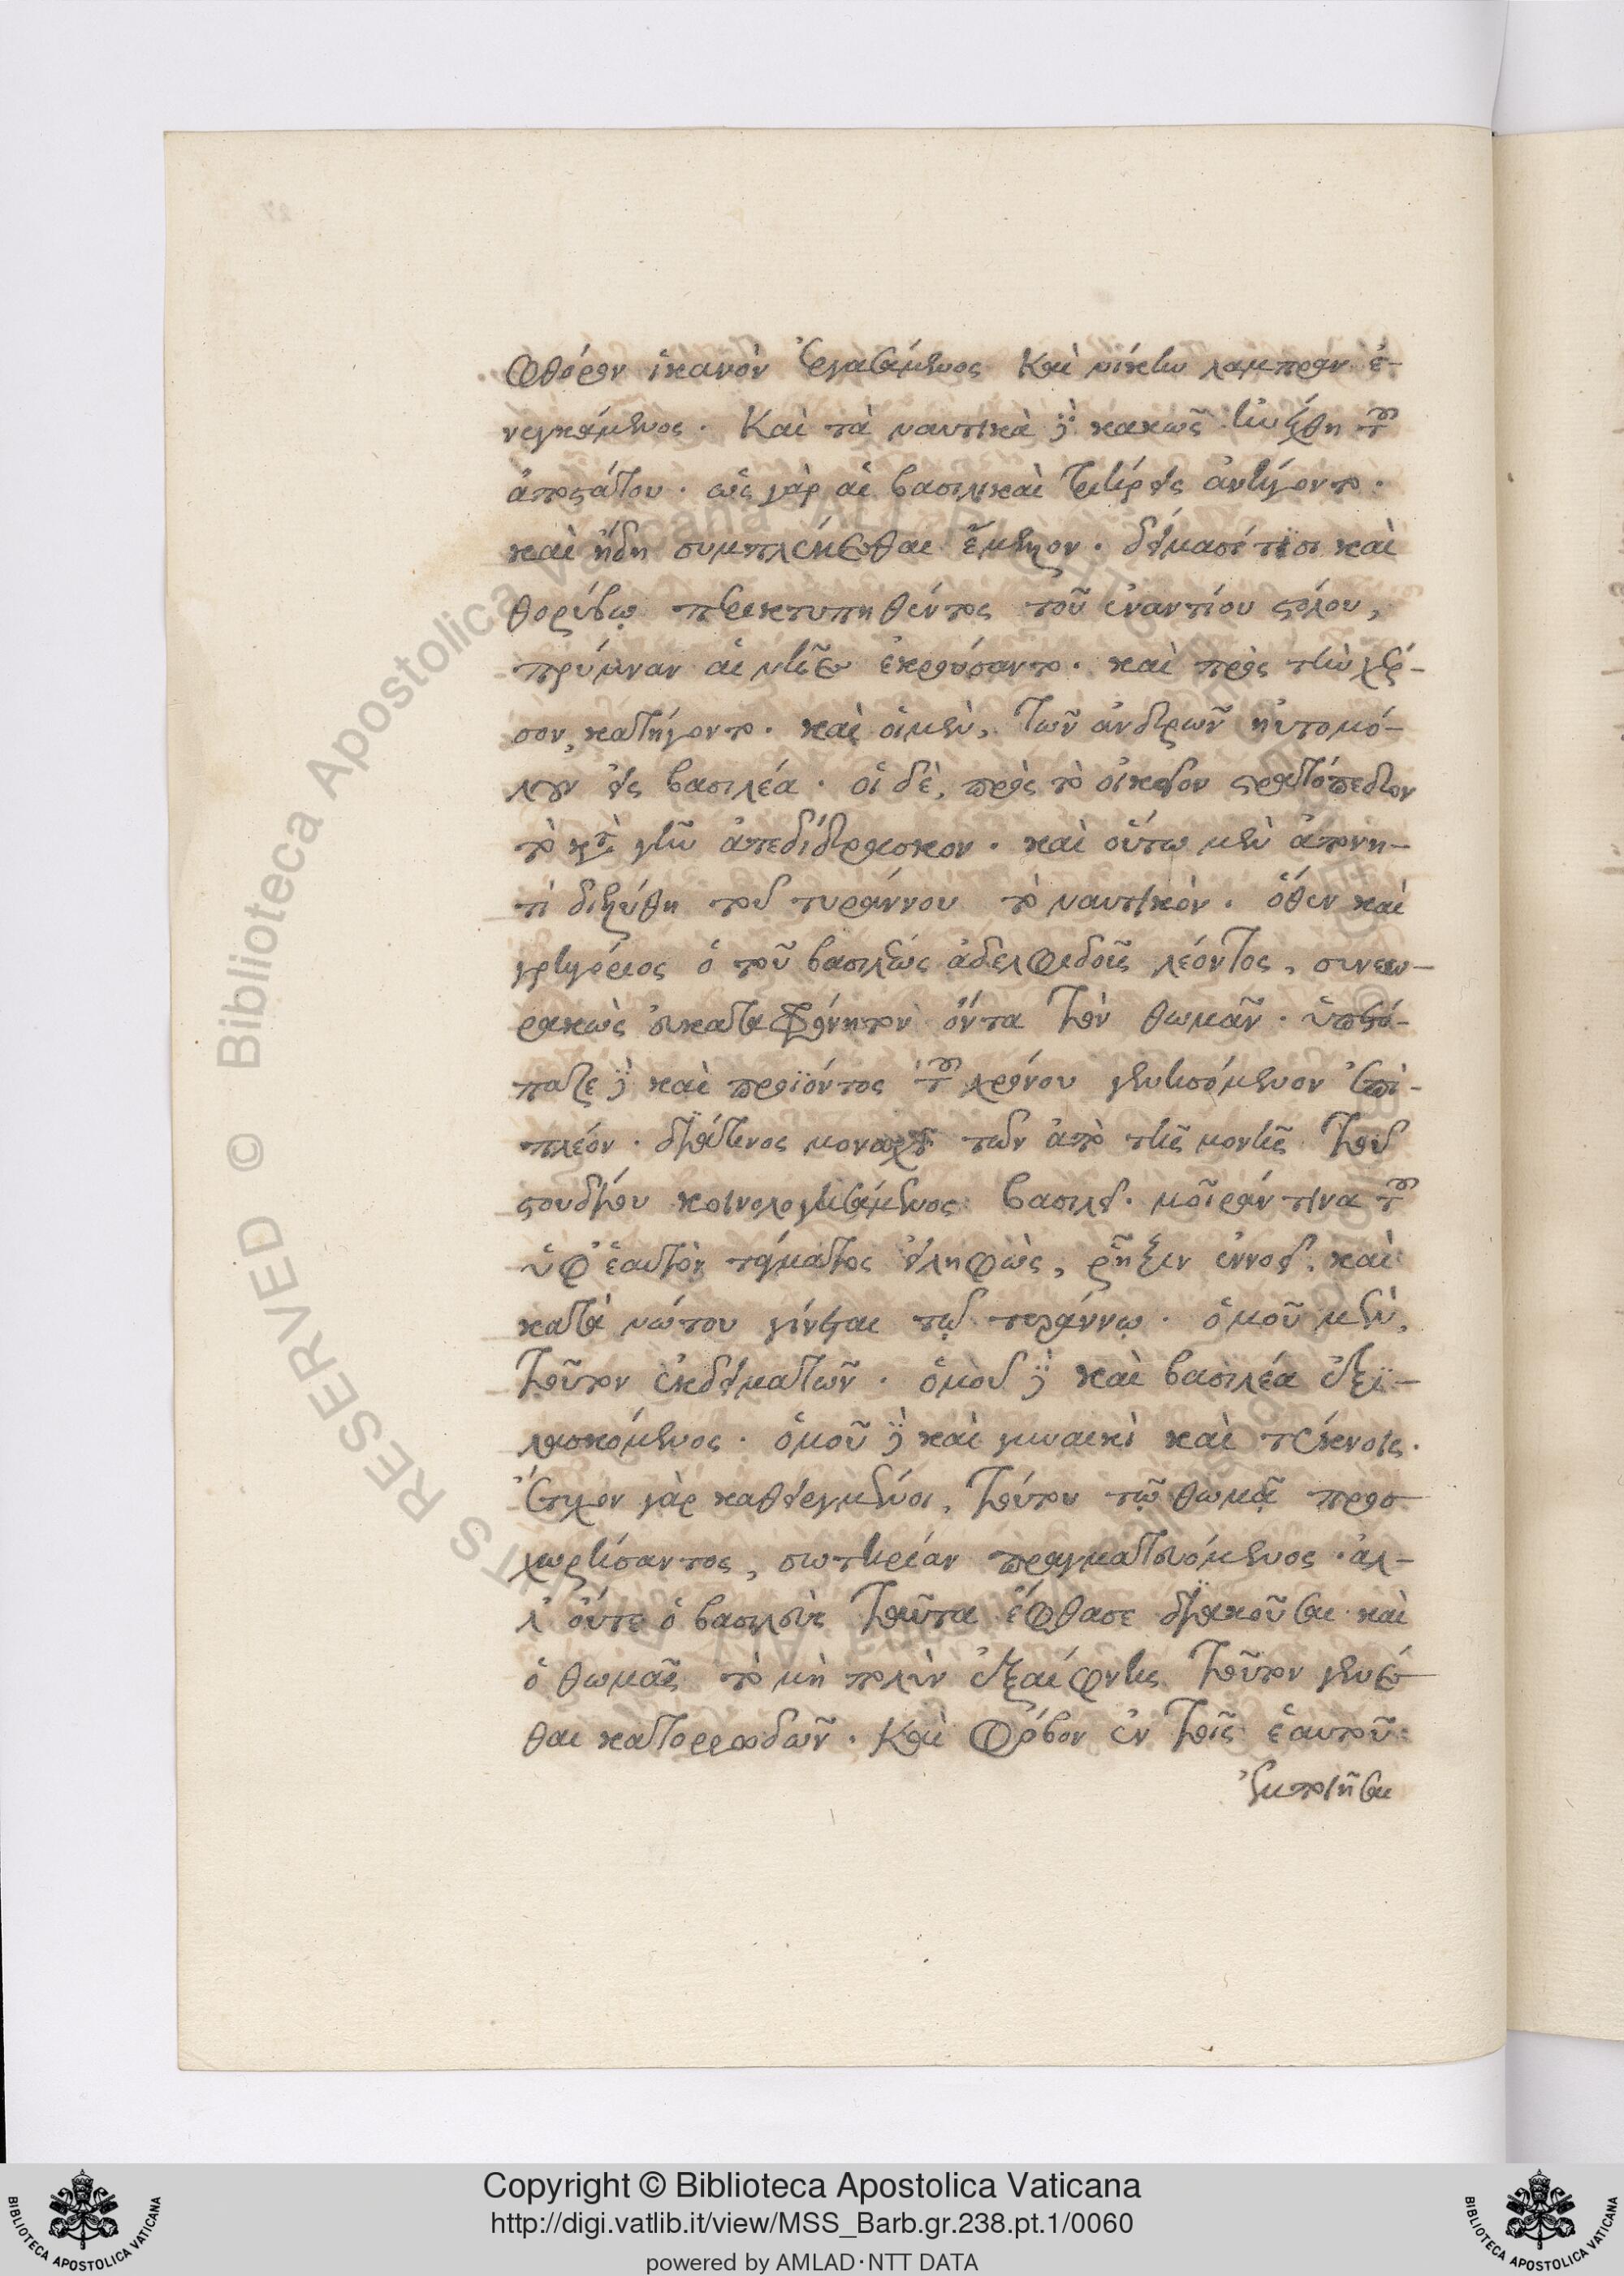 φθόρον ἱκανὸν ἐργασάμενος καὶ νίκην λαμπρὰν ἐ-
νεγκάμενος. Καὶ τὰ ναυτικὰ δὲ κακῶς ἠνέχθη τοῦ
ἀποστάτου. ὡς γὰρ αἱ βασιλικαὶ τριήρεις ἀνήγοντο.
καὶ ἤδη συμπλέκεσθαι ἔμελλον. δείμασί τισι καὶ
θορύβῳ περικτυπηθέντος τοῦ ἐναντίου στόλου,
πρύμναν αἱ νῆες ἐκρούσαντο. καὶ πρὸς τὴν χέρ-
σον, κατήγοντο. καὶ οἱ μὲν, τῶν ἀνδρῶν ηὐτομό-
λουν εἰς βασιλέα. οἱ δὲ, πρὸς τὸ οἰκεῖον στρατόπεδον
τὸ κατὰ γῆν ἀπεδίδρασκον. καὶ οὕτω μὲν ἀπονη-
τὶ διελύθη τοῦ τυράννου τὸ ναυτικὸν. ὅθεν καὶ
γρηγόριος ὁ τοῦ βασιλέως ἀδελφιδοῦς λέοντος, συνεω-
ρακὼς εὐκαταφρόνητον ὄντα τὸν θωμᾶν. ὑπετό-
παζε δὲ καὶ προϊόντος τοῦ χρόνου γενησόμενον ἐπι-
πλέον. διά τινος μοναχοῦ τῶν ἀπὸ τῆς μονῆς τοῦ
στουδίου κοινολογησάμενος βασιλεῖ. μοῖράν τινα τοῦ
ὑφ' ἑαυτὸν τάγματος εἰληφὼς, ῥῆξιν ἐννοεῖ, καὶ
κατὰ νώτου γίνεται τῷ τυράννῳ. ὁμοῦ μὲν,
τοῦτον ἐκδειματῶν. ὁμοῦ δὲ καὶ βασιλέα ἐξι-
λασκόμενος. ὁμοῦ δὲ καὶ γυναικὶ καὶ τέκνοις.
ἔτυχον γὰρ καθειργμένοι, τούτου τῷ θωμᾷ προσ
χωρήσαντος, σωτηρίαν πραγματευόμενος. ἀλ-
λ' οὔτε ὁ βασιλεὺς ταῦτα ἔφθασε διακοῦσαι καὶ
ὁ θωμᾶς τὸ μὴ πολὺν ἐξαίφνης τοῦτον γενέσ
θαι κατορρωδῶν. καὶ φόβον ἐν τοῖς ἑαυτοῦ
ἐμποιῆσαι
Copyright © Biblioteca Apostolica Vaticana
http://digi.vatlib.it/view/MSS_Barb.gr.238.pt.1/0060
powered by AMLAD·NTT DATA